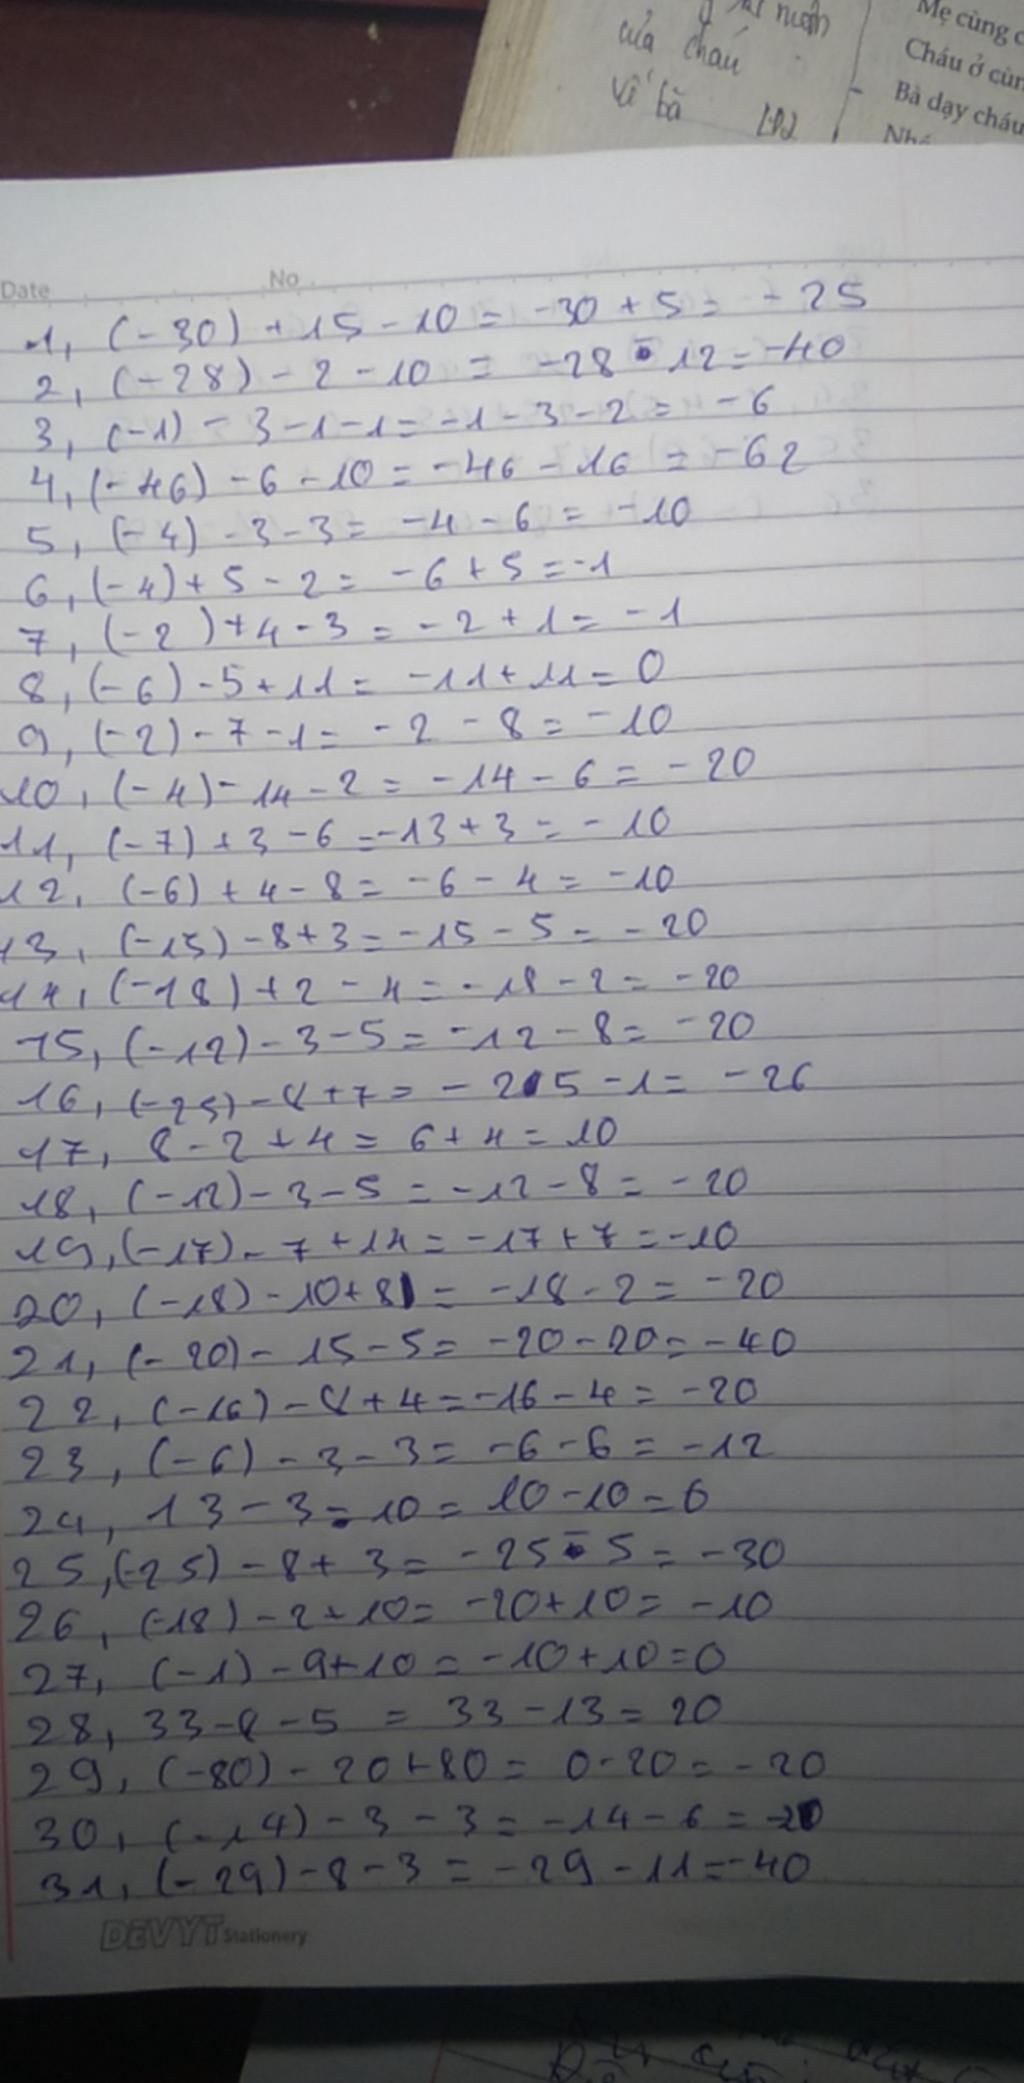 của cháu
về bà
Mẹ cùng c
Cháu ở cùn
Bà dạy cháu
Date No
1, (-30) + 15 - 10 = -30 + 5 = - 25
2, (-28) - 2 - 10 = -28 - 12 = -40
3, (-1) - 3 - 1 - 1 = -1 - 3 - 2 = -6
4, (-46) - 6 - 10 = -46 - 16 = -62
5, (-4) - 3 - 3 = -4 - 6 = -10
6, (-4) + 5 - 2 = -6 + 5 = -1
7, (-2) + 4 - 3 = -2 + 1 = -1
8, (-6) - 5 + 11 = -11 + 11 = 0
9, (-2) - 7 - 1 = -2 - 8 = -10
10, (-4) - 14 - 2 = -14 - 6 = -20
11, (-7) + 3 - 6 = -13 + 3 = -10
12, (-6) + 4 - 8 = -6 - 4 = -10
13, (-15) - 8 + 3 = -15 - 5 = -20
14, (-18) + 2 - 4 = -18 - 2 = -20
15, (-12) - 3 - 5 = -12 - 8 = -20
16, (-25) - 8 + 7 = -25 - 1 = -26
17, 8 - 2 + 4 = 6 + 4 = 10
18, (-12) - 3 - 5 = -12 - 8 = -20
19, (-17) - 7 + 14 = -17 + 7 = -10
20, (-18) - 10 + 8 = -18 - 2 = -20
21, (-20) - 15 - 5 = -20 - 20 = -40
22, (-16) - 8 + 4 = -16 - 4 = -20
23, (-6) - 3 - 3 = -6 - 6 = -12
24, 13 - 3 - 10 = 10 - 10 = 0
25, (-25) - 8 + 3 = -25 - 5 = -30
26, (-18) - 2 + 10 = -20 + 10 = -10
27, (-1) - 9 + 10 = -10 + 10 = 0
28, 33 - 8 - 5 = 33 - 13 = 20
29, (-80) - 20 + 80 = 0 - 20 = -20
30, (-14) - 3 - 3 = -14 - 6 = -20
31, (-29) - 8 - 3 = -29 - 11 = -40
DEVYT Stationery